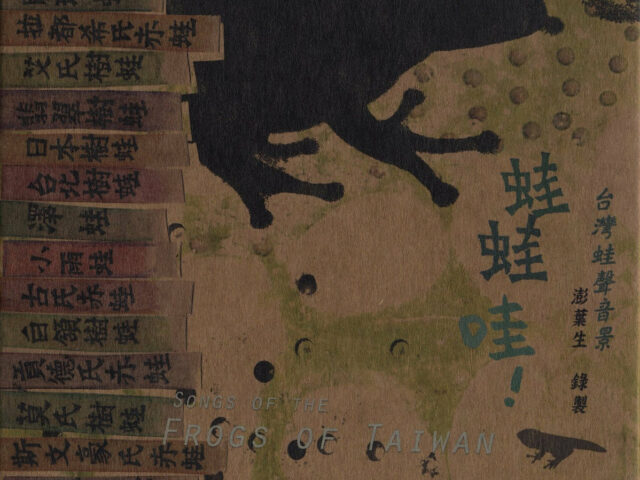 拉都希氏赤蛙
艾氏樹蛙
翡翠樹蛙
日本樹蛙
台北樹蛙
澤蛙
小雨蛙
古氏赤蛙
白頷樹蛙
貢德氏赤蛙
莫氏樹蛙
斯文豪氏赤蛙
台灣蛙聲音景
澎葉生 錄製
蛙蛙哇！
SONGS OF THE
FROGS OF TAIWAN